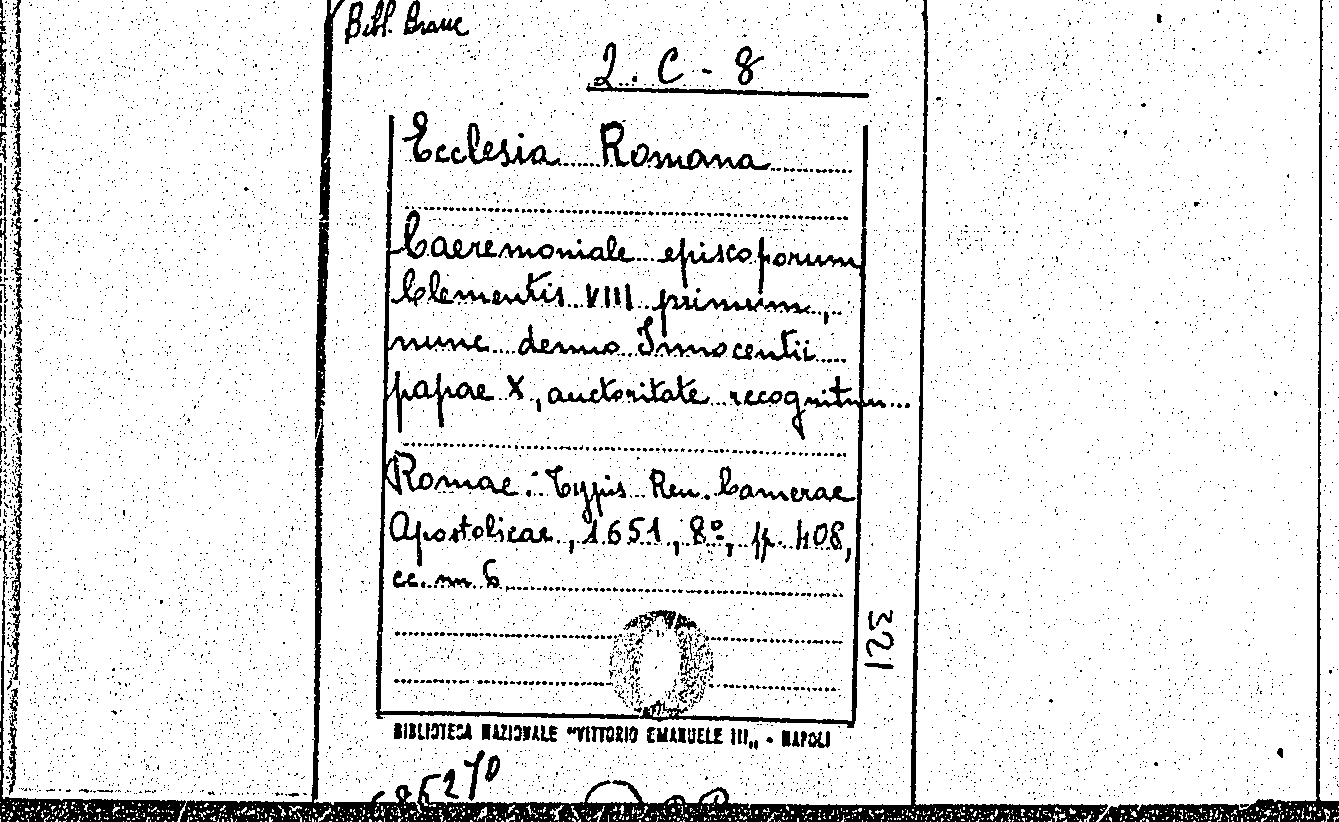 Bibl. Branc
2. C - 8
Ecclesia Romana
Caeremoniale episcoporum
Clementis VIII primum,
nunc denuo Innocentii
papae X, auctoritate recognitum
Romae: Typis Rev. Camerae
Apostolicae, 1651, 8º, pp. 408,
cc. nn 6
321
BIBLIOTECA NAZIONALE "VITTORIO EMANUELE III„ - NAPOLI